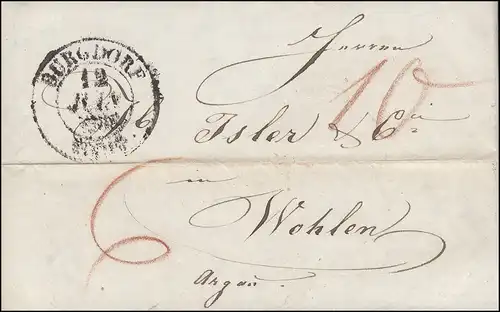 BURGDORF
12
JUNI
Herren
10
Isler & Cie
in
6
Wohlen
Argau